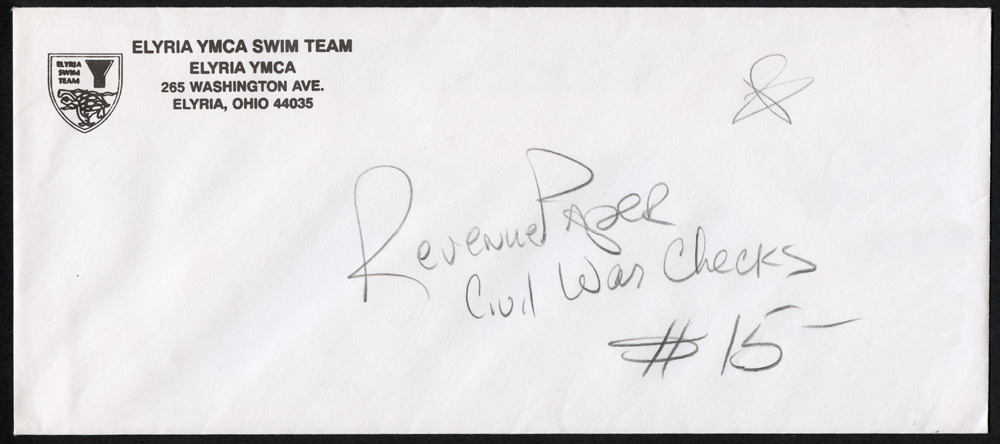 ELYRIA
SWIM
TEAM
ELYRIA YMCA SWIM TEAM
ELYRIA YMCA
265 WASHINGTON AVE.
ELYRIA, OHIO 44035
Revenue Paper
Civil War Checks
# 15-